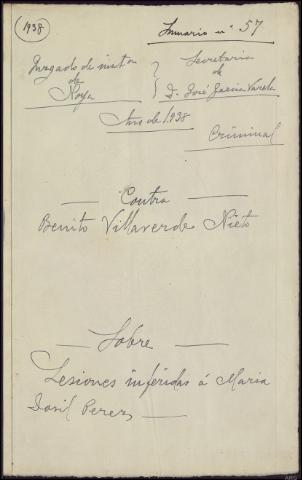 1938
Sumario nº 57
Juzgado de instón
de
Noya
Secretaria
de
D. José Garcia Varela
Año de 1938
Criminal
Contra
Benito Villaverde Nieto
Sobre
Lesiones inferidas á Maria
Dosil Perez